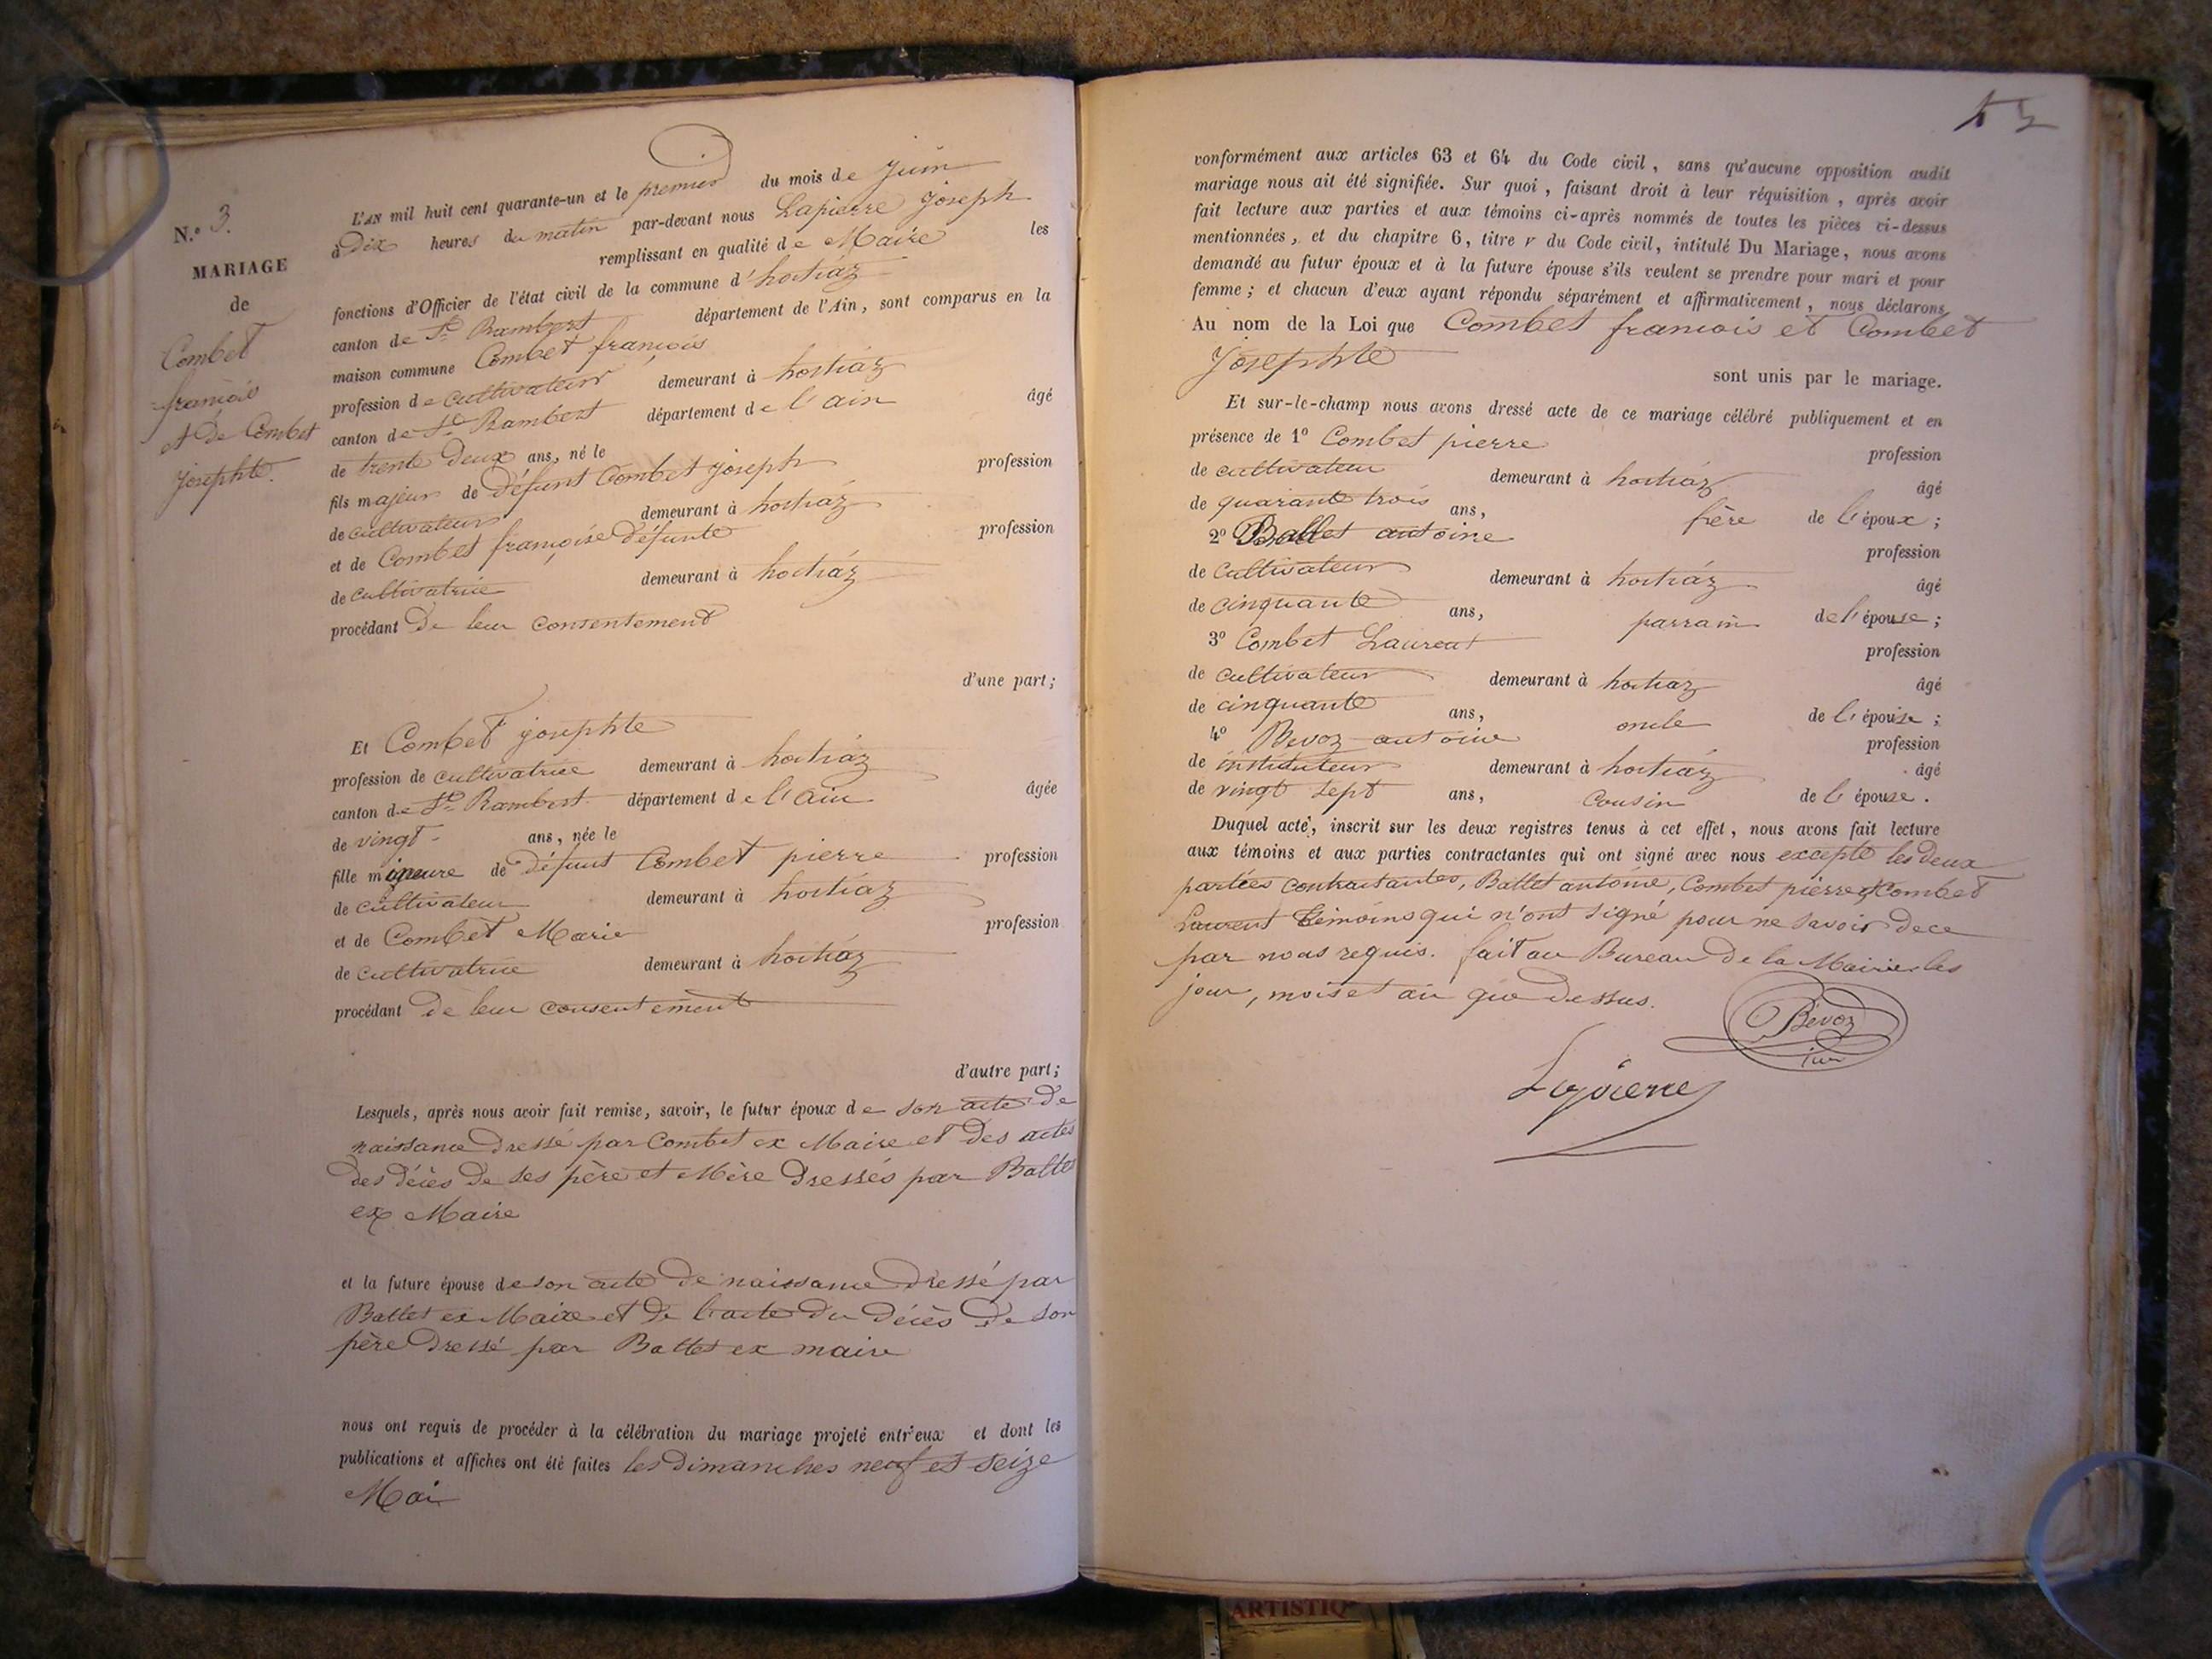 N.º 3.
MARIAGE
de
Combet
françois
et de Combet
josephte.
L'AN mil huit cent quarante-un et le premier du mois de juin
à dix heures du matin par-devant nous Lapierre joseph
remplissant en qualité de Maire les
fonctions d'Officier de l'état civil de la commune d'hostiaz
canton de St Rambert département de l'Ain, sont comparus en la
maison commune Combet françois
profession de cultivateur demeurant à hostiaz
canton de St Rambert département de l'ain âgé
de trente deux ans, né le
fils majeur de défunt Combet joseph profession
de cultivateur demeurant à hostiaz
et de Combet françoise défunte profession
de cultivatrice demeurant à hostiaz
procédant de leur consentement
d'une part;
Et Combet josephte
profession de cultivatrice demeurant à hostiaz
canton de St Rambert département de l'ain âgée
de vingt ans, née le
fille mineure de défunt Combet pierre profession
de cultivateur demeurant à hostiaz
et de Combet Marie profession
de cultivatrice demeurant à hostiaz
procédant de leur consentement
d'autre part;
Lesquels, après nous avoir fait remise, savoir, le futur époux de son acte de
naissance dressé par Combet ex Maire et des actes
des décès de ses père et Mère dressés par Ballet
ex Maire
et la future épouse de son acte de naissance dressé par
Ballet ex Maire et de l'acte du décès de son
père dressé par Ballet ex maire
nous ont requis de procéder à la célébration du mariage projeté entr'eux et dont les
publications et affiches ont été faites les dimanches neuf et seize
Mai
43
conformément aux articles 63 et 64 du Code civil, sans qu'aucune opposition audit
mariage nous ait été signifiée. Sur quoi, faisant droit à leur réquisition, après avoir
fait lecture aux parties et aux témoins ci-après nommés de toutes les pièces ci-dessus
mentionnées, et du chapitre 6, titre v du Code civil, intitulé Du Mariage, nous avons
demandé au futur époux et à la future épouse s'ils veulent se prendre pour mari et pour
femme; et chacun d'eux ayant répondu séparément et affirmativement, nous déclarons
Au nom de la Loi que Combet francois et Combet
Josephte
sont unis par le mariage.
Et sur-le-champ nous avons dressé acte de ce mariage célébré publiquement et en
présence de 1º Combet pierre profession
de cultivateur demeurant à hostiaz âgé
de quarante trois ans, frère de l'époux;
2º Ballet antoine profession
de cultivateur demeurant à hostiaz âgé
de cinquante ans, parrain de l'épouse;
3º Combet Laurent profession
de cultivateur demeurant à hostiaz âgé
de cinquante ans, oncle de l'épouse;
4º Bevoz antoine profession
de instituteur demeurant à hostiaz âgé
de vingt sept ans, cousin de l'épouse.
Duquel acte, inscrit sur les deux registres tenus à cet effet, nous avons fait lecture
aux témoins et aux parties contractantes qui ont signé avec nous excepté les deux
parties contractantes, Ballet antoine, Combet pierre et Combet
Laurent témoins qui n'ont signé pour ne savoir de ce
par nous requis. fait au Bureau de la Mairie les
jour, mois et an que dessus.
Bévoz
Lapierre
ARTISTIQ